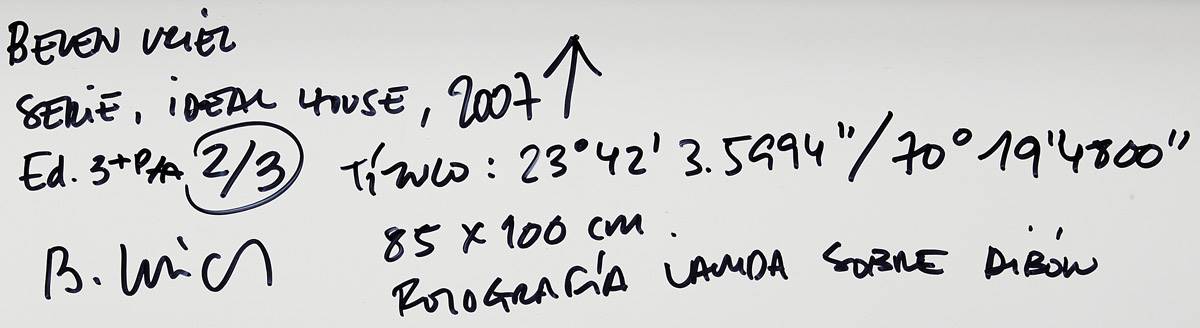 BELEN URIEL
SERIE, IDEAL HOUSE, 2007 ↑
Ed. 3+P/A 2/3 TÍTULO: 23°42' 3.5994"/70°19'4800"
B. Uriel 85 x 100 cm.
FOTOGRAFÍA LAMDA SOBRE DIBÓN